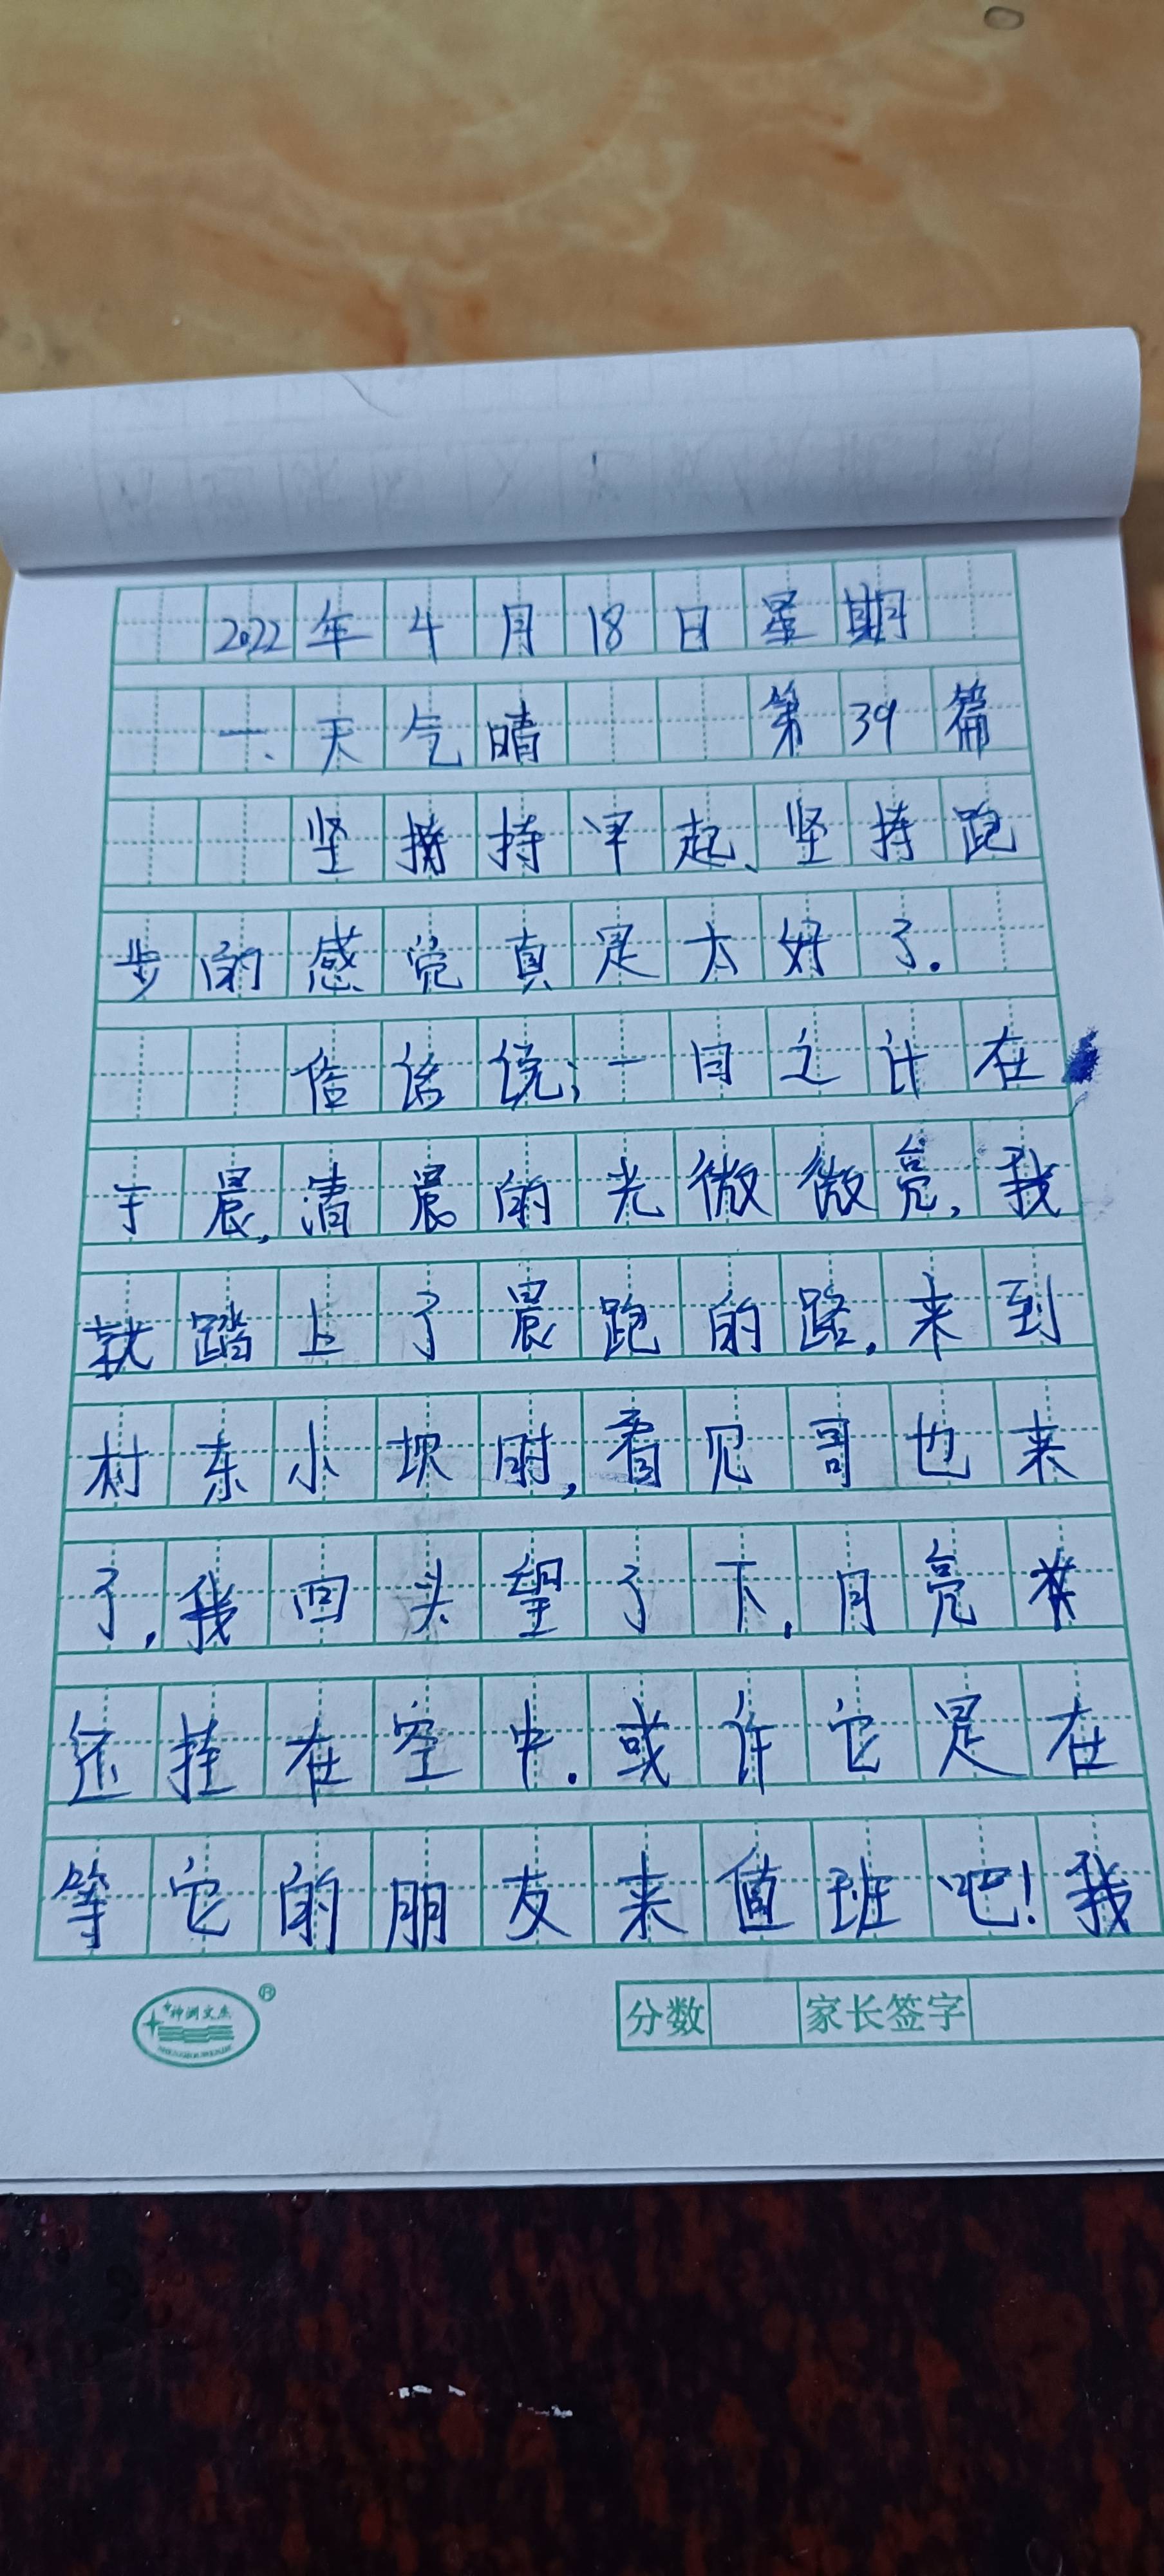 2022年4月18日星期
一、天气晴 第39篇
坚持早起、坚持跑
步的感觉真是太好了.
俗话说;一日之计在
于晨,清晨的光微微亮,我
就踏上了晨跑的路.来到
村东小坝时,看见哥也来
了.我回头望了下.月亮
还挂在空中.或许它是在
等它的朋友来值班吧!我
神洲文杰
®
分数 家长签字